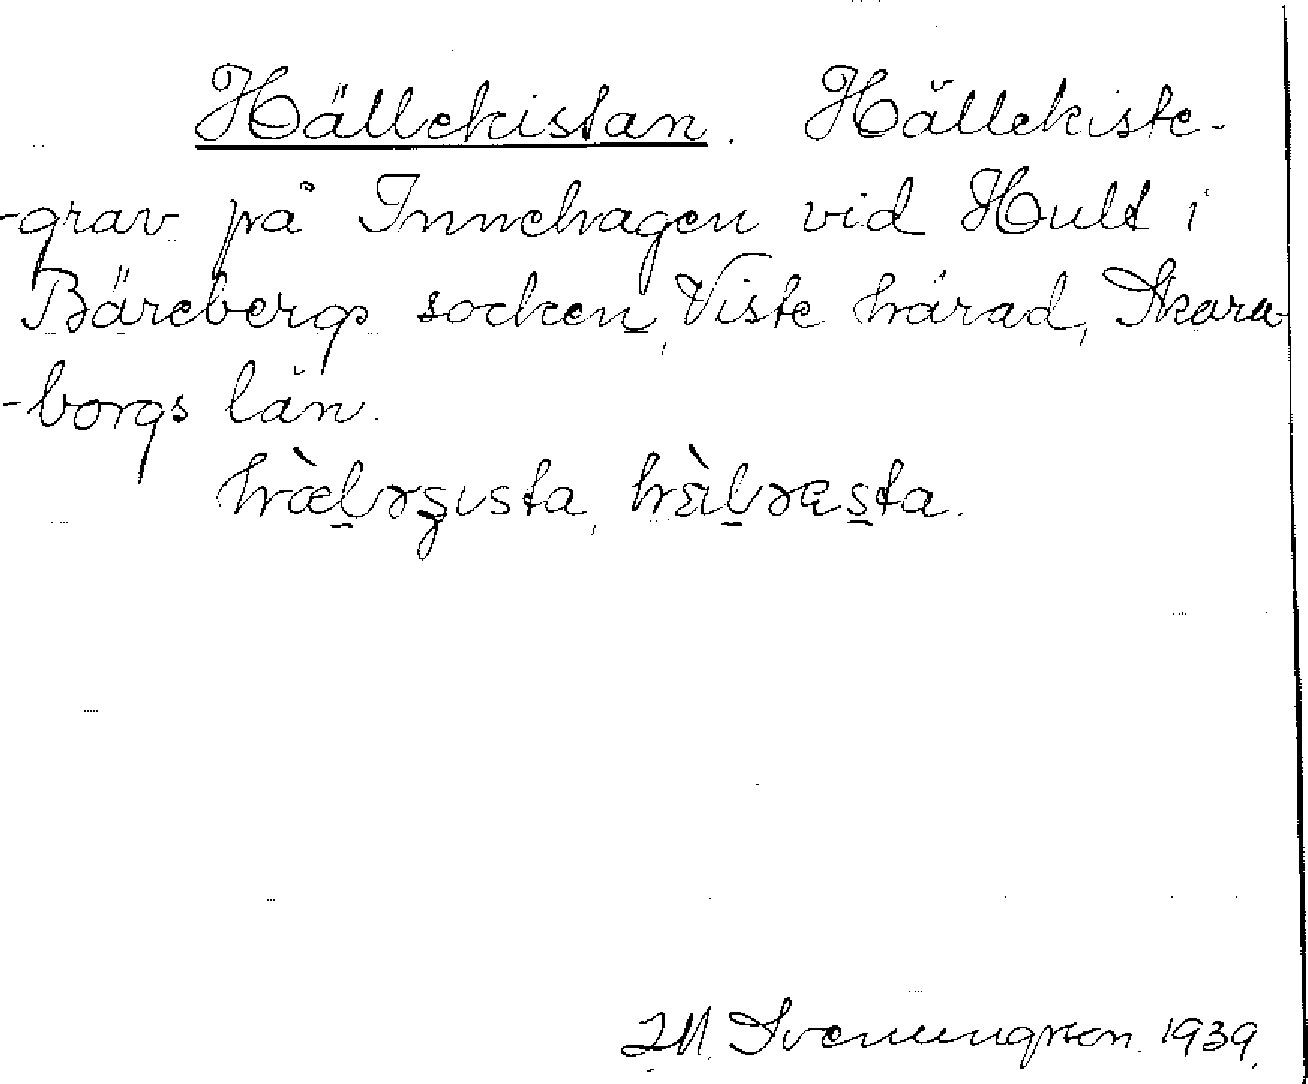 Hällekistan. Hällekiste-
-grav på Innehagen vid Hult i
Bärebergs socken, Viste härad, Skara-
-borgs län.
J.M. Svenungsson. 1939.